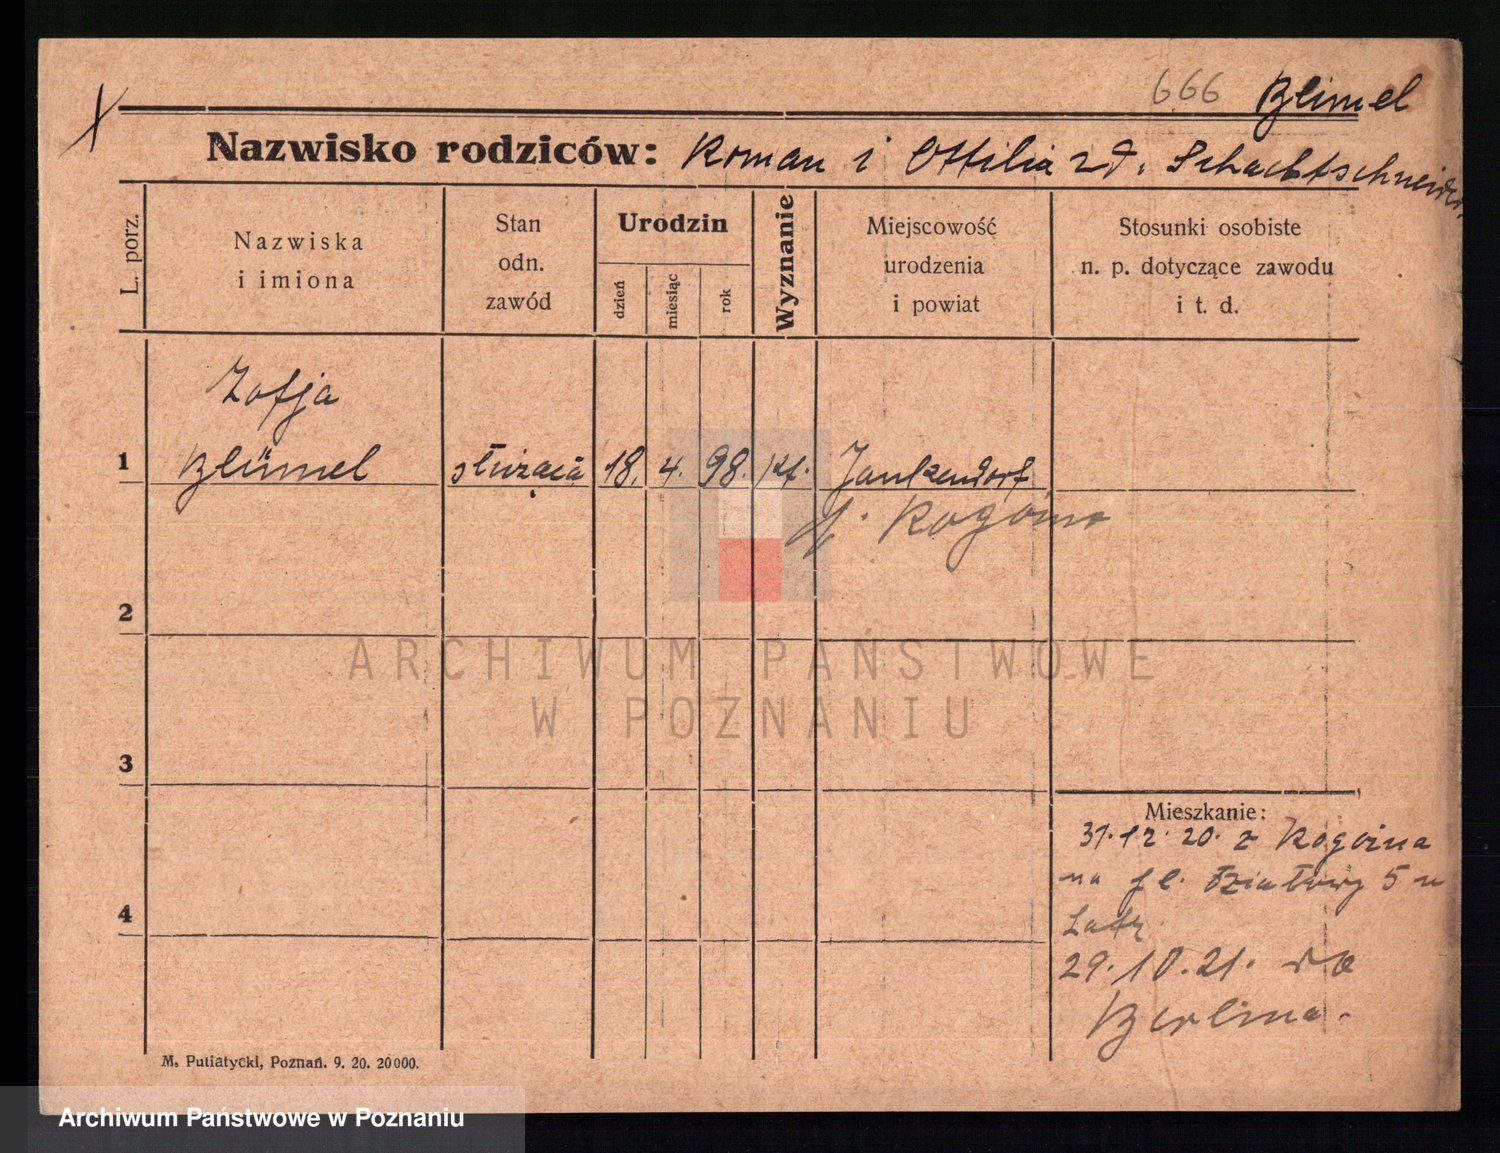 666 Blümel
Nazwisko rodziców: Roman i Ottilia zd. Schachtschneider
L. porz.
Nazwiska
i imiona
Stan
odn.
zawód
Urodzin
dzień
miesiąc
rok
Wyznanie
Miejscowość
urodzenia
i powiat
Stosunki osobiste
n. p. dotyczące zawodu
i t. d.
Zofja
1 Blümel służąca 18. 4. 98. kt. Jankendorf
p. Rogoźno
2
3
4
ARCHIWUM PAŃSTWOWE
W POZNANIU
Mieszkanie:
31.12.20. z Rogoźna
na pl. Działowy 5 u
29.10.21. do
Berlina.
M. Putiatycki, Poznań. 9. 20. 20000.
Archiwum Państwowe w Poznaniu